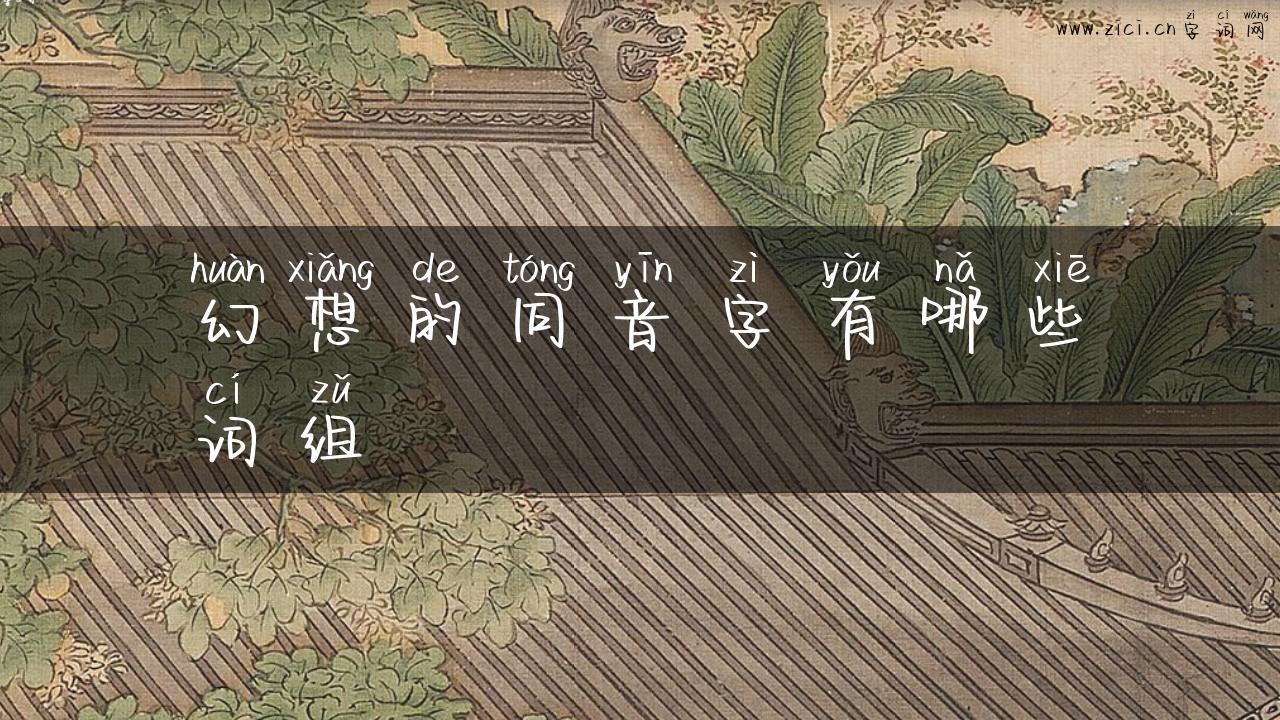 zì cí wǎng
www.zici.cn 字词网
huàn xiǎng de tóng yīn zì yǒu nǎ xiē
幻想的同音字有哪些
cí zǔ
词组